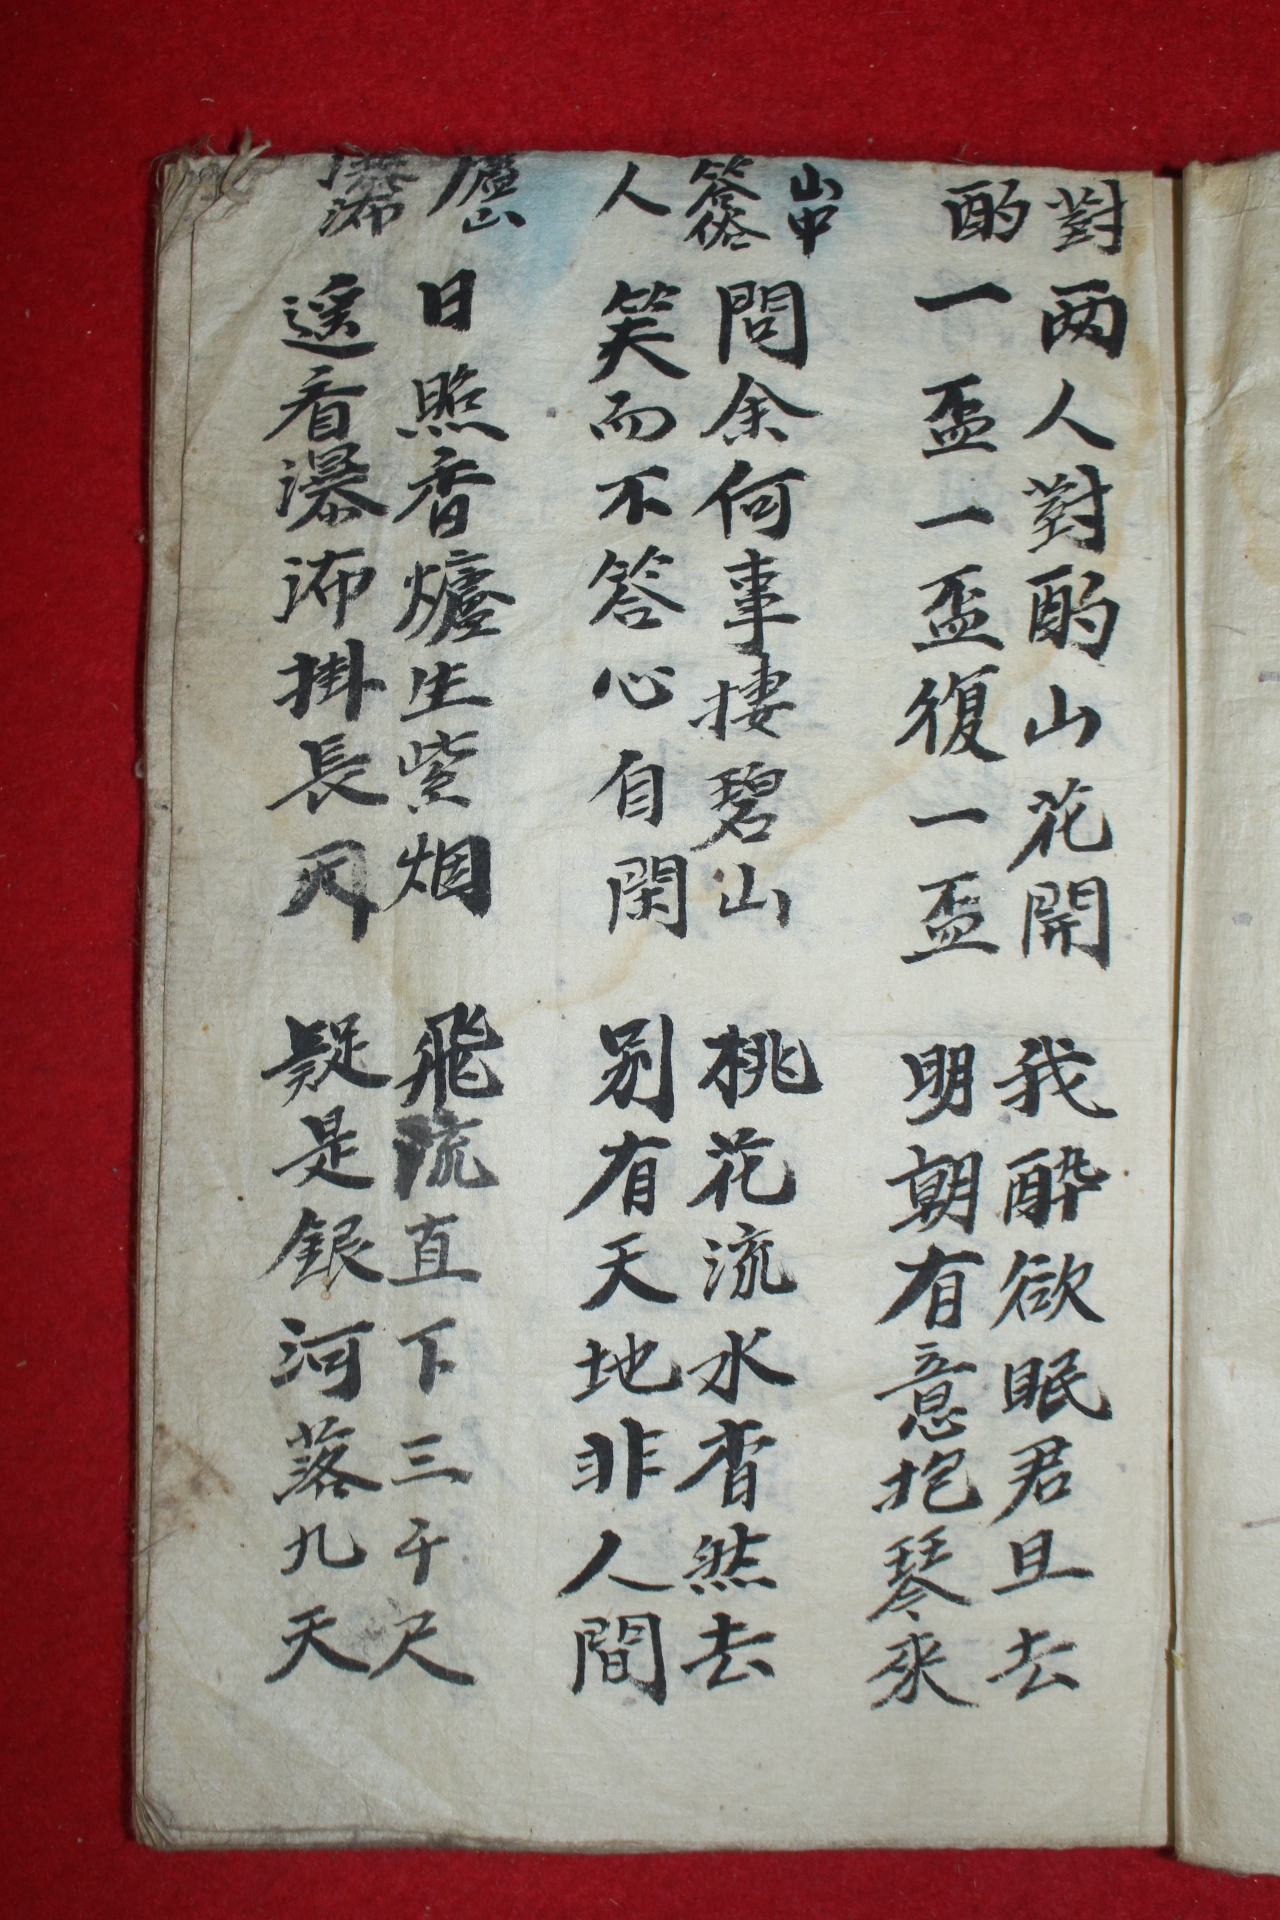 對酌
兩人對酌山花開 我醉欲眠君且去
一盃一盃復一盃 明朝有意抱琴來
山中答俗人
問余何事捿碧山 桃花流水杳然去
笑而不答心自閑 別有天地非人間
廬山瀑㳍
日照香爐生紫烟 飛流直下三千尺
遥看瀑㳍掛長天 疑是銀河落九天